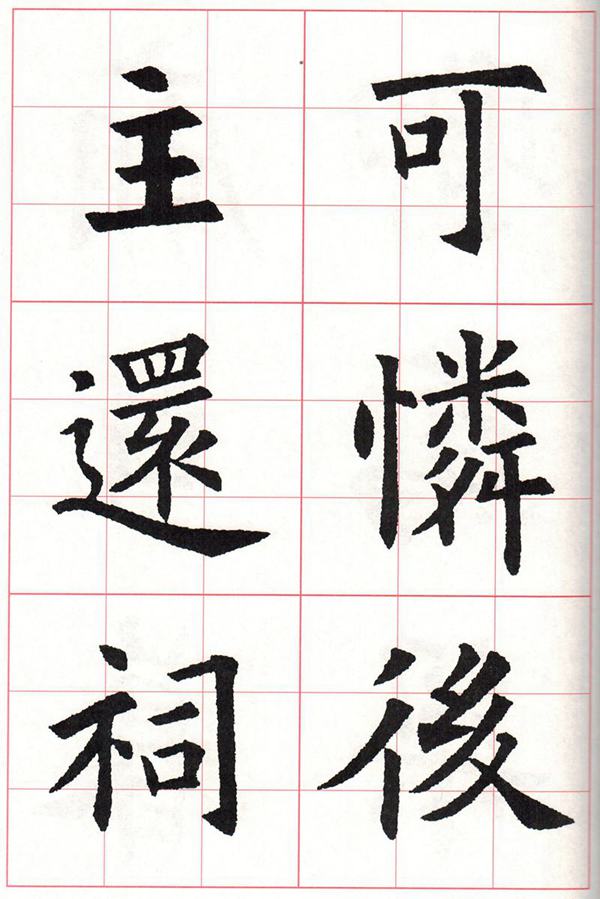 可憐後
主還祠